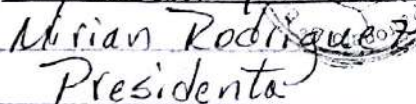 Mirian Rodriguez
Presidenta